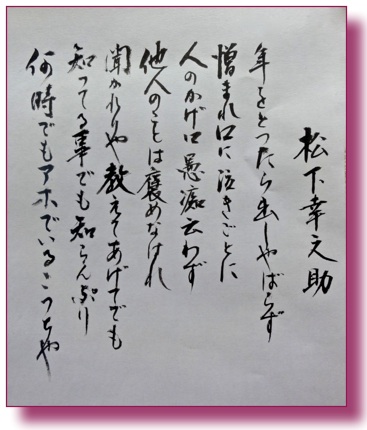 松下幸之助
年をとったら出しゃばらず
憎まれ口に泣きごとに
人のかげ口愚痴云わず
他人のことは褒めなはれ
聞かれりゃ教えてあげてでも
知ってる事でも知らんぷり
何時でもアホでいるこっちゃ